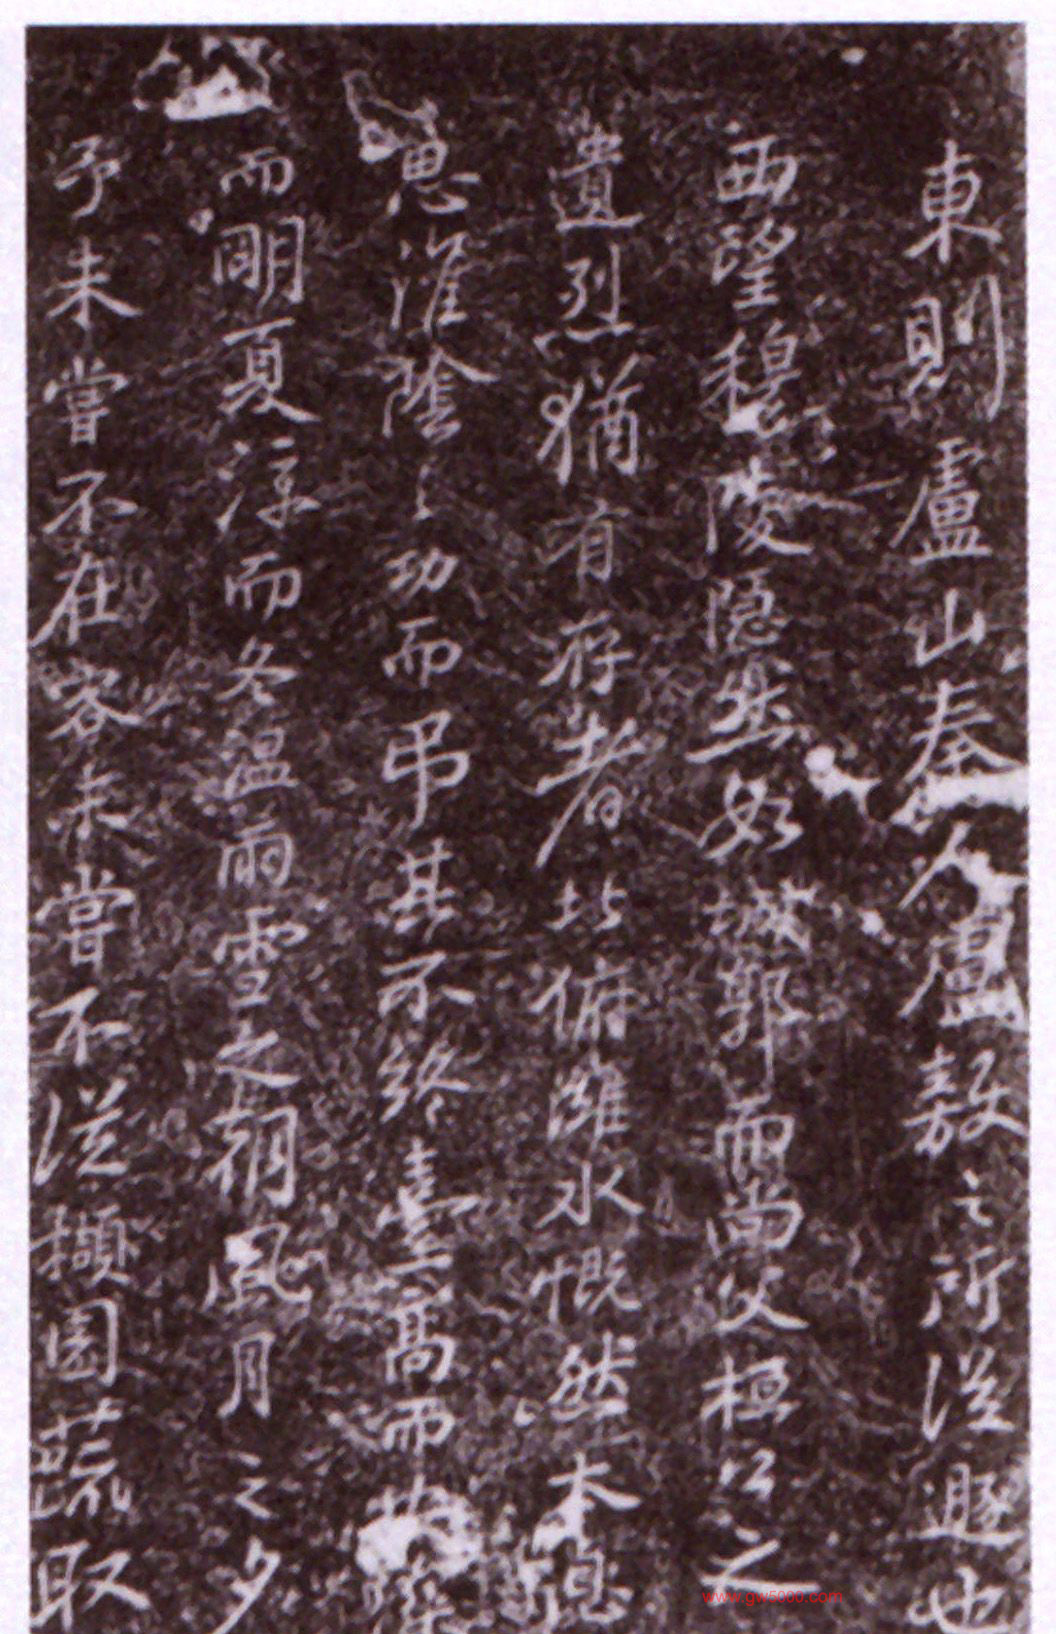 東則盧山秦人盧敖之所從遯也
西望穆陵隱然如城郭師尚父桓公之
遺烈猶有存者北俯濰水慨然太息
思淮陰之功而弔其不終臺高而安深
而明夏涼而冬溫雨雪之朝風月之夕
予未嘗不在客未嘗不從擷園蔬取
www.gw5000.com